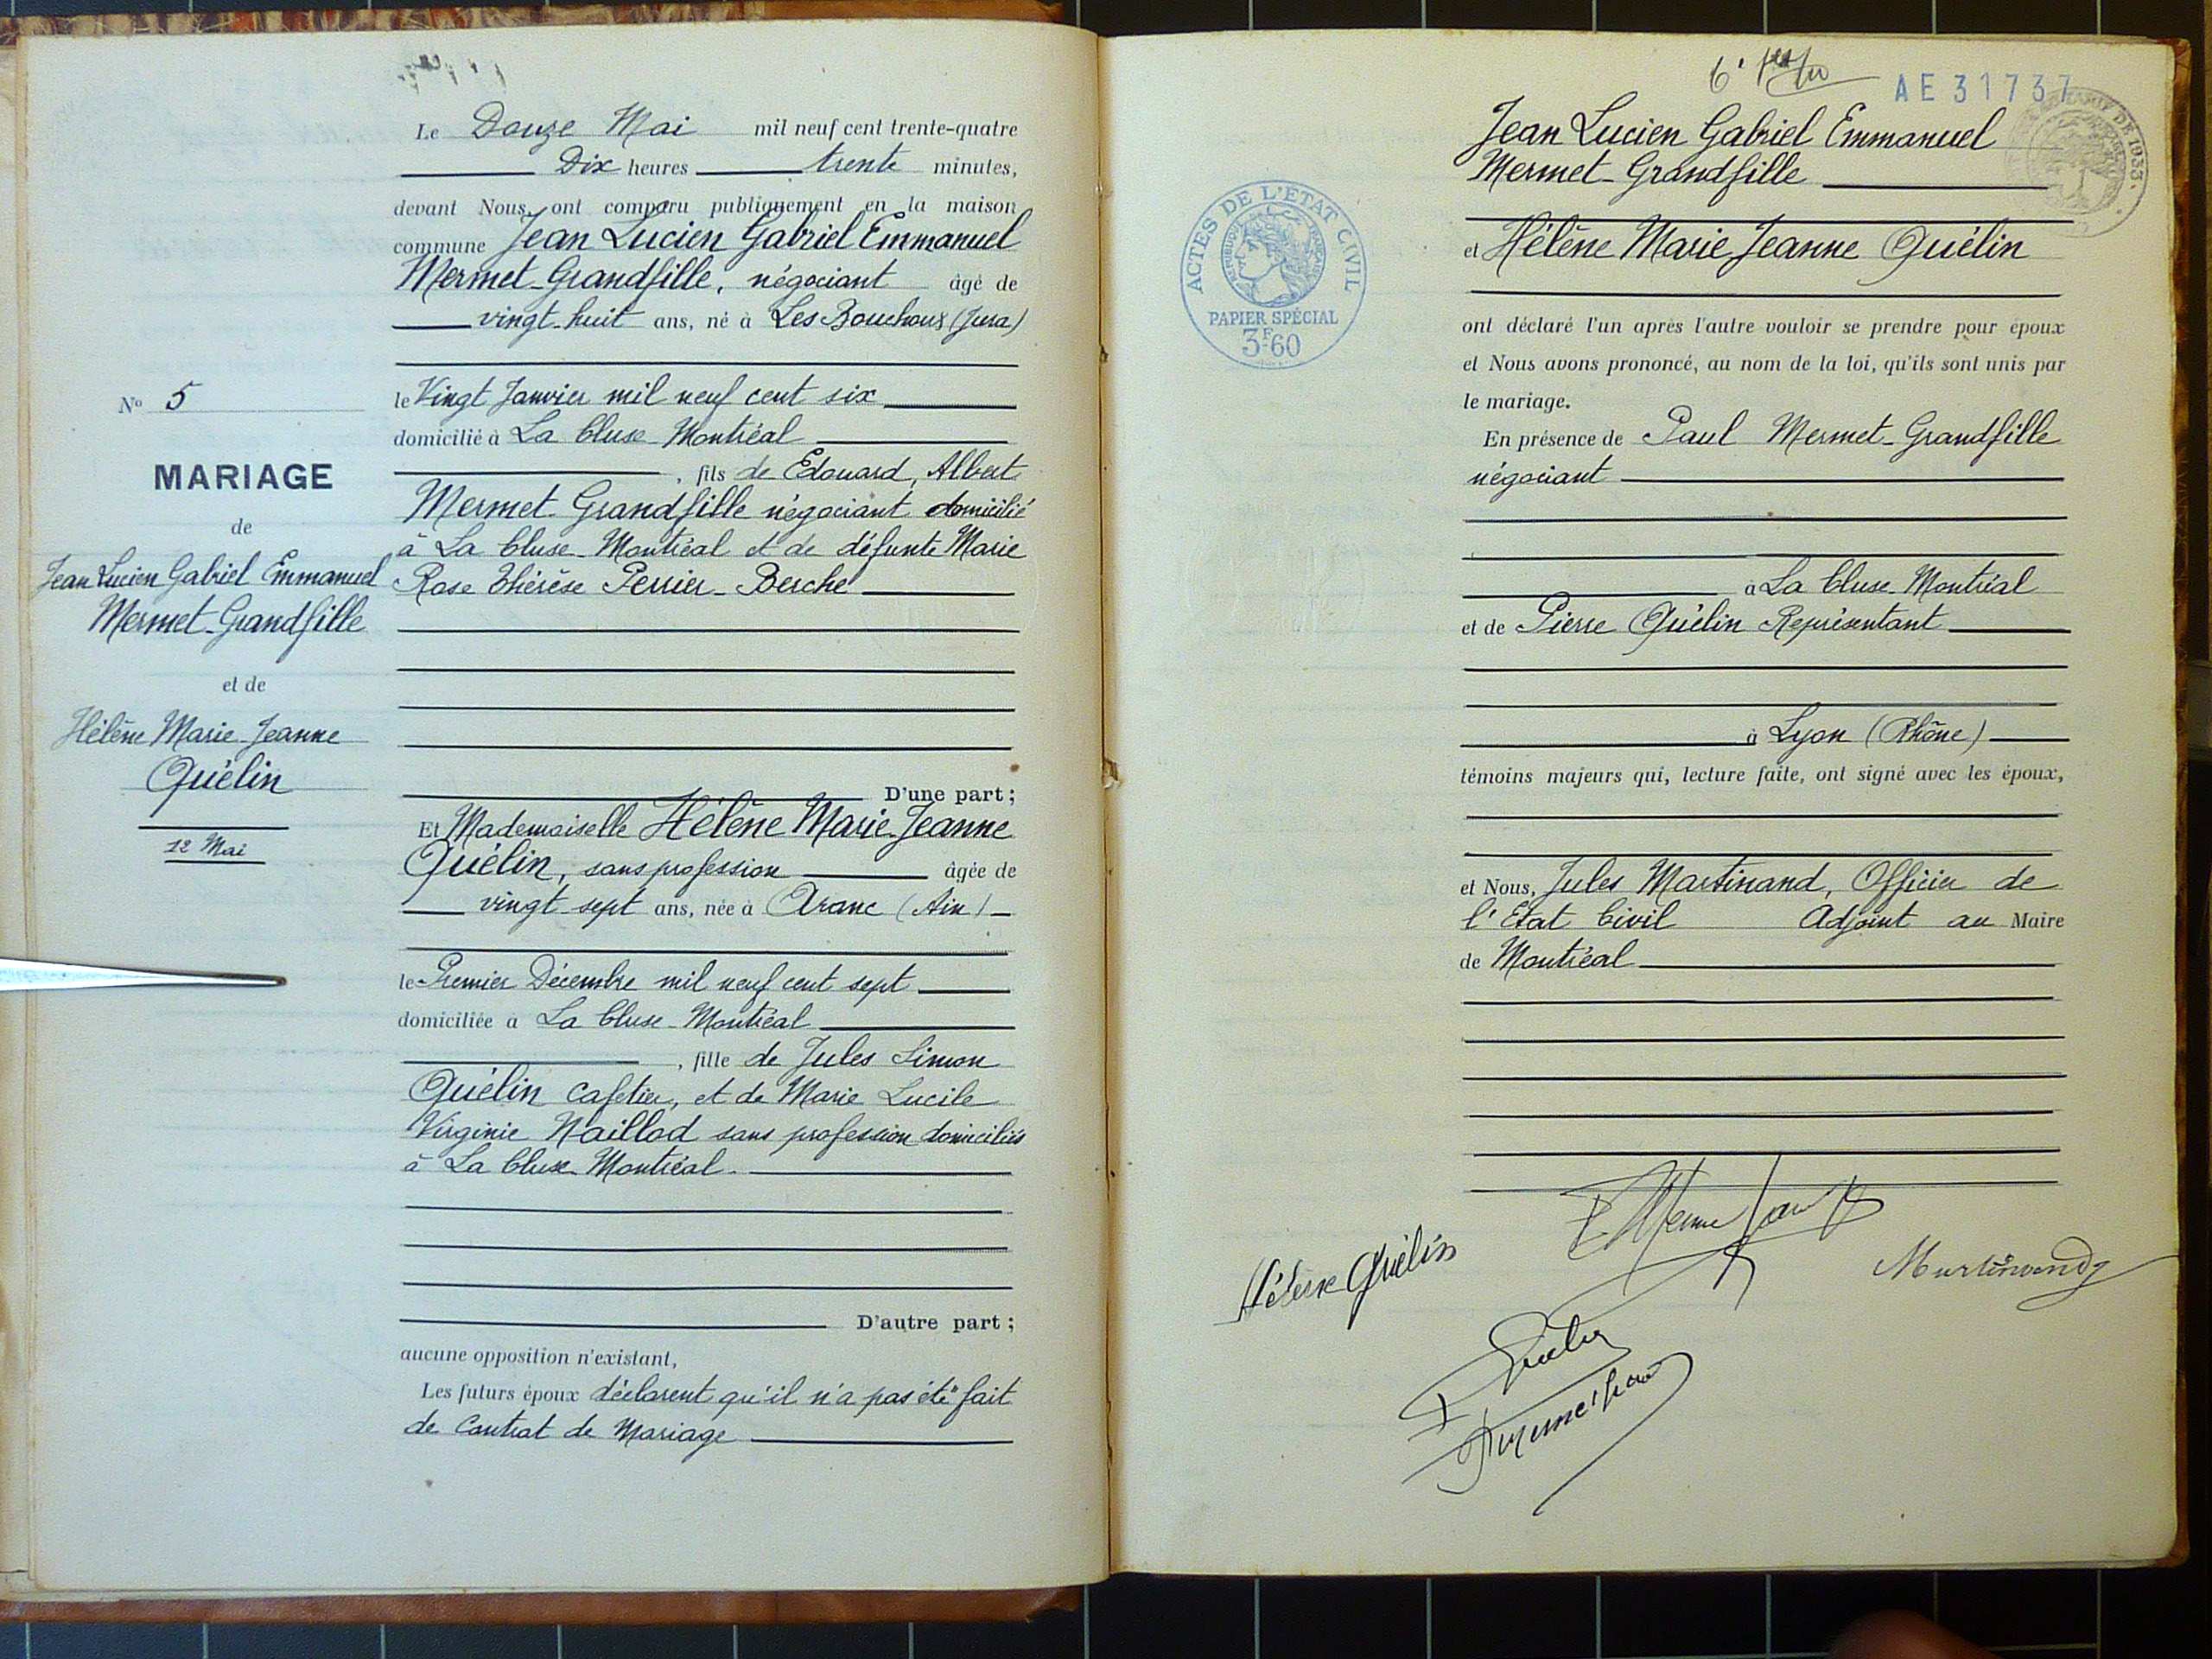 Le Douze Mai mil neuf cent trente-quatre
Dix heures trente minutes,
devant Nous ont comparu publiquement en la maison
commune Jean Lucien Gabriel Emmanuel
Mermet-Grandfille, négociant âgé de
vingt-huit ans, né à Les Bouchoux (Jura)
le Vingt Janvier mil neuf cent six
domicilié à La Cluse-Montréal
, fils de Edouard, Albert
Mermet-Grandfille négociant domicilié
à La Cluse-Montréal et de défunte Marie
Rose Thérèse Perrier-Berche
D'une part ;
Et Mademoiselle Hélène Marie-Jeanne
Quélin, sans profession âgée de
vingt-sept ans, née à Aranc (Ain)
le Premier Décembre mil neuf cent sept
domiciliée à La Cluse-Montréal
, fille de Jules Simon
Quélin cafetier, et de Marie Lucile
Virginie Naillod sans profession domiciliés
à La Cluse-Montréal
D'autre part ;
aucune opposition n'existant,
Les futurs époux déclarent qu'il n'a pas été fait
de Contrat de Mariage
No 5
MARIAGE
de
Jean Lucien Gabriel Emmanuel
Mermet-Grandfille
et de
Hélène Marie-Jeanne
Quélin
12 Mai
AE 31737
ACTES DE L'ÉTAT CIVIL
RÉPUBLIQUE FRANÇAISE
PAPIER SPÉCIAL
3F60
DE 1933.
Jean Lucien Gabriel Emmanuel
Mermet-Grandfille
et Hélène Marie Jeanne Quélin
ont déclaré l'un après l'autre vouloir se prendre pour époux
et Nous avons prononcé, au nom de la loi, qu'ils sont unis par
le mariage.
En présence de Paul Mermet-Grandfille
négociant
à La Cluse-Montréal
et de Pierre Quélin Représentant
à Lyon (Rhône)
témoins majeurs qui, lecture faite, ont signé avec les époux,
et Nous, Jules Martinand, Officier de
l'Etat Civil Adjoint au Maire
de Montréal
Hélène Quélin
Martinand